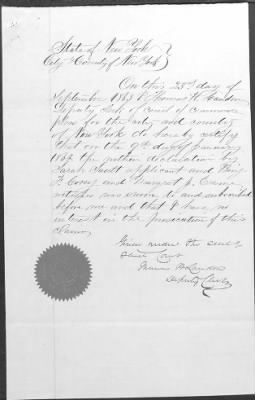 State of New York
City & County of New York
On this 23d day of
September 1863 I Thomas H. Landon
Deputy Clerk of Court of common
pleas for the city and county
of New York do hereby certify
that on the 9th day of January
1863 the within declaration by
Sarah Scott applicant and
F. and Margaret J.
witnesses was sworn to and subscribed
before me and that I have no
interest in the prosecution of this
claim.
Given under the seal of
said Court
Thomas H Landon
Deputy Clerk